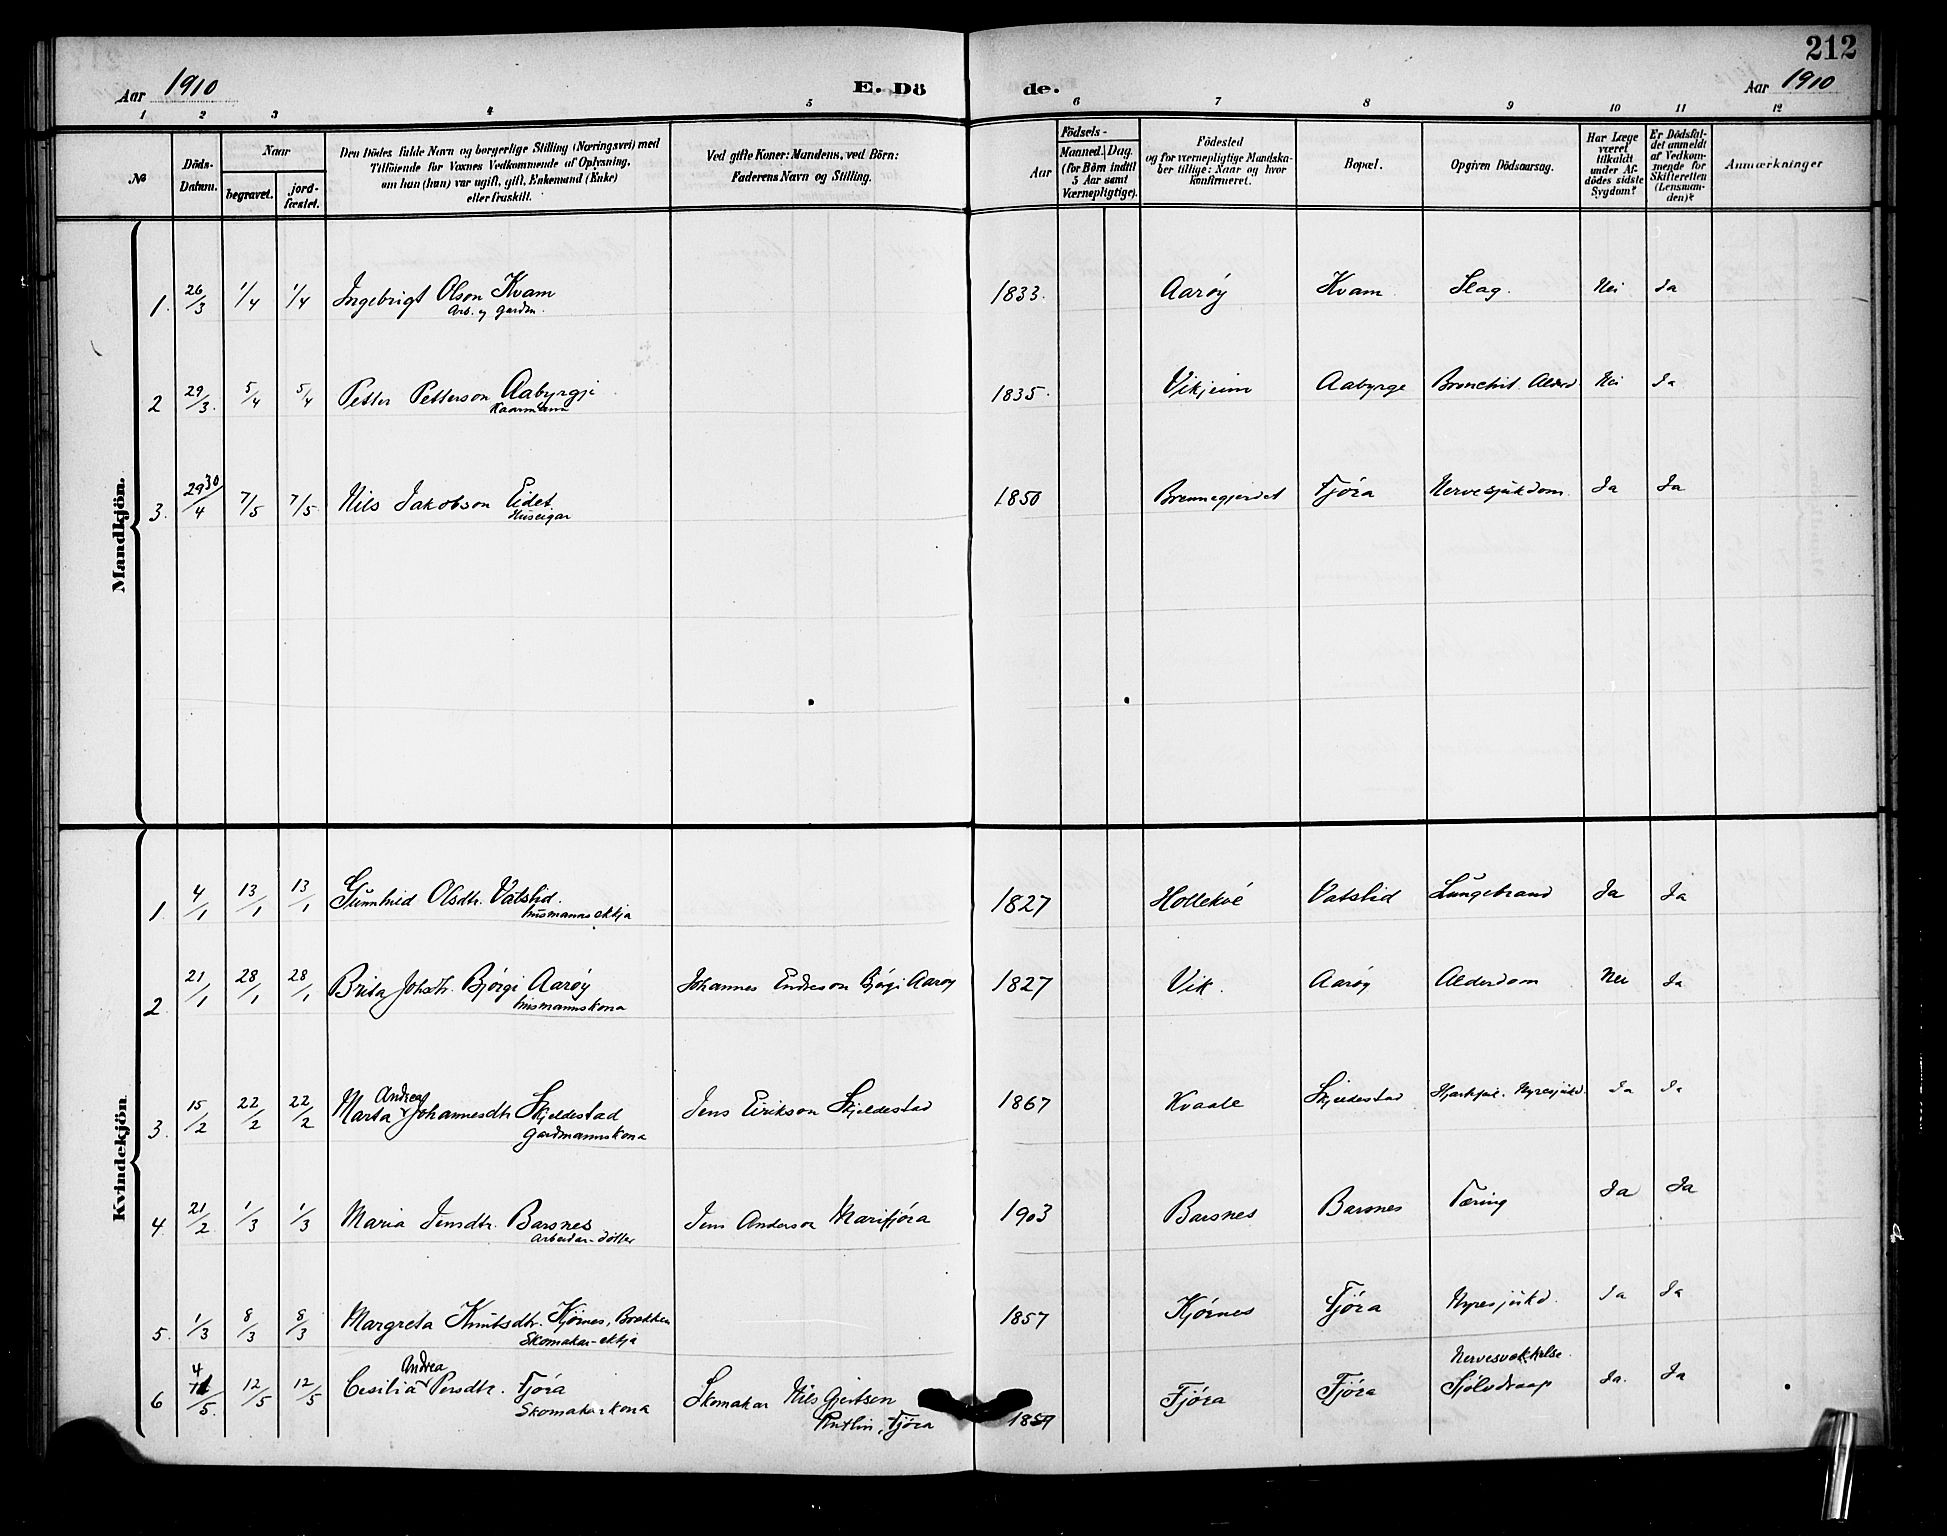 212
Aar 1910 E. Dö de. Aar 1910
1 2 3 4 5 6 7 8 9 10 11 12
№
Döds-Datum.
Naar
begravet.
jord-fæstet.
Den Dödes fulde Navn og borgerlige Stilling (Næringsvei) med
Tilföiende for Voxnes Vedkommende af Oplysning,
om han (hun) var ugift, gift, Enkemand (Enke)
eller fraskilt.
Ved gifte Koner: Mandens, ved Börn:
Faderens Navn og Stilling.
Födsels-
Aar
Maaned. Dag.
(for Börn indtil
5 Aar samt
Værnepligtige).
Födested
og for værnepligtige Mandska-
ber tillige: Naar og hvor
konfirmeret.
Bopæl.
Opgiven Dödsaarsag.
Har Læge
været
tilkaldt
under Af-
dödes sidste
Sygdom?
Er Dödsfal-
det anmeldt
af Vedkom-
mende for
Skifteretten
(Lensman-
den)?
Anmærkninger
Mandkjön.
1. 26/3 1/4 1/4 Ingebrigt Olson Kvam 1833. Aarøy Kvam Slag. Nei Ja
Arb. og Gardm.
2 29/3. 5/4 5/4 Petter Petterson Aabyrgji 1835. Vikjeim Aabyrge Bronchit. Alderd Nei Ja
Kaarmann
3. 29 30/4 7/5 7/5. Nils Jakobson Eidet. 1850 Brennegjerdet Fjøra Nervesjukdom. Ja Ja
Huseigar
Kvindekjön.
1. 4/1 13/1 13/1 Gunnhild Olsdtr. Vatslid. 1827 Hollekve Vatslid Lungebrand Ja Ja
husmannsekkja
2 21/1 28/1 28/1 Brita Johsdtr. Bjørgi Aarøy Johannes Endreson Bjørgi Aarøy 1827 Vik. Aarøy Alderdom Nei Ja
husmannskona
Andrea
3. 15/2 22/2 22/2 Marta Johannesdtr Skjeldestad Jens Eirikson Skjeldestad 1867 Kvaale Skjeldestad Hjartefeil. Nyresjukd. Ja Ja
Gardmannskona
4. 21/2 1/3 1/3 Maria Jensdtr. Barsnes Jens Anderson Marifjøra 1903 Barsnes Barsnes Tæring Ja Ja
Arbeidar-dotter
5. 1/3 8/3 8/3 Margreta Knutsdtr. Kjørnes, Brekken 1857 Kjørnes Fjøra Nyresjukd. Ja Ja
Skomakar-ekkja
Andrea Nervesvekkelse.
6 4/5. 12/5 12/5 Cesilia Persdtr. Fjøra Skomakar Nils Gjertsen 1859 Fjøra Fjøra Sjølvdraap Ja. Ja
Skomakarkona Pintlin, Fjøra